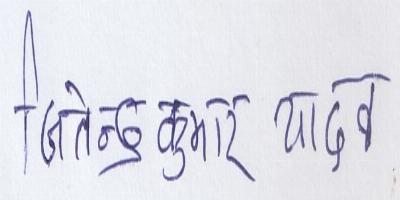 जितेन्द्र कुमार यादव